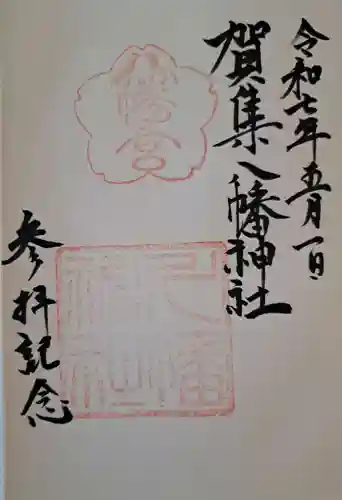 令和七年五月一日
賀集八幡神社
参拝記念
八幡宮